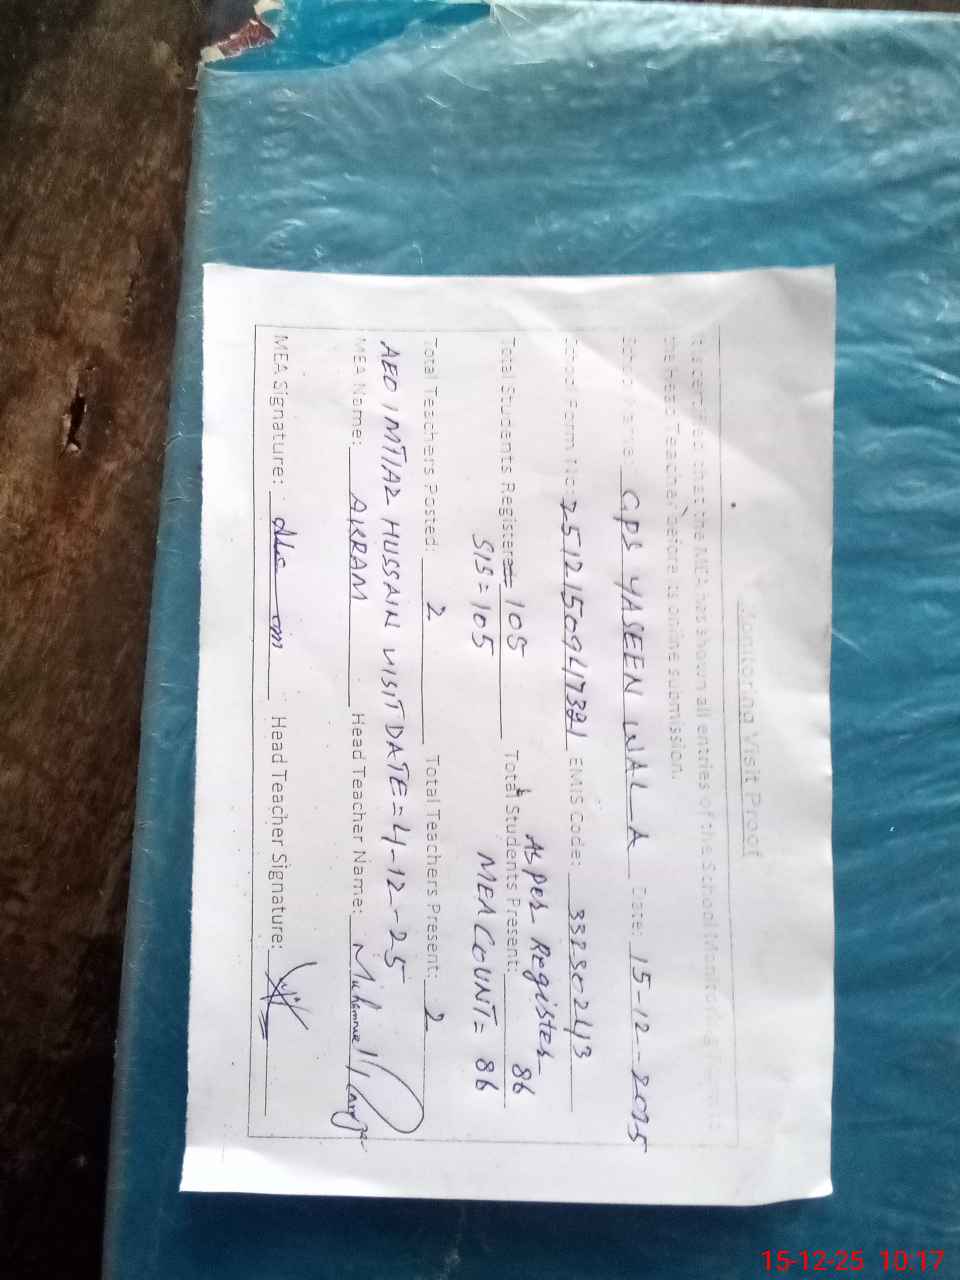 Monitoring Visit Proof
It is certified that the MEA has shown all entries of the School Monitoring
the Head Teacher before its online submission.
School Name: GPS YASEEN WAL A Date: 15-12-2025
School Form No: EMIS Code: 33230243
As per Register
Total Students Registered: 105 Total Students Present: 86
SIS = 105 MEA COUNT = 86
Total Teachers Posted: 2 Total Teachers Present: 2
AEO IMTIAZ HUSSAIN VISIT DATE = 4-12-25
MEA Name: AKRAM Head Teacher Name: Muhammad
MEA Signature: Head Teacher Signature:
15-12-25 10:17